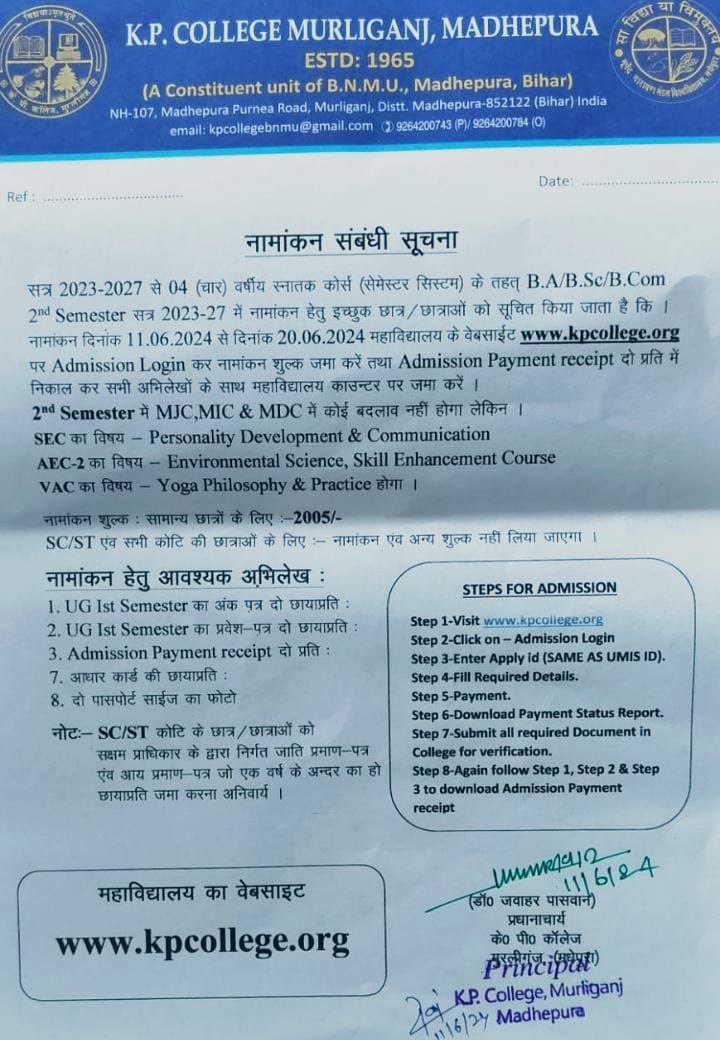 K.P. COLLEGE MURLIGANJ, MADHEPURA
ESTD: 1965
(A Constituent unit of B.N.M.U., Madhepura, Bihar)
NH-107, Madhepura Purnea Road, Murliganj, Distt. Madhepura-852122 (Bihar) India
email: kpcollegebnmu@gmail.com ✆ 9264200743 (P)/ 9264200784 (O)
Ref : ...................................
Date: ..................................
नामांकन संबंधी सूचना
सत्र 2023-2027 से 04 (चार) वर्षीय स्नातक कोर्स (सेमेस्टर सिस्टम) के तहत् B.A/B.Sc/B.Com
2nd Semester सत्र 2023-27 में नामांकन हेतु इच्छुक छात्र/छात्राओं को सूचित किया जाता है कि ।
नामांकन दिनांक 11.06.2024 से दिनांक 20.06.2024 महाविद्यालय के वेबसाईट www.kpcollege.org
पर Admission Login कर नामांकन शुल्क जमा करें तथा Admission Payment receipt दो प्रति में
निकाल कर सभी अभिलेखों के साथ महाविद्यालय काउन्टर पर जमा करें ।
2nd Semester में MJC,MIC & MDC में कोई बदलाव नहीं होगा लेकिन ।
SEC का विषय – Personality Development & Communication
AEC-2 का विषय – Environmental Science, Skill Enhancement Course
VAC का विषय – Yoga Philosophy & Practice होगा ।
नामांकन शुल्क : सामान्य छात्रों के लिए :–2005/-
SC/ST एंव सभी कोटि की छात्राओं के लिए :– नामांकन एंव अन्य शुल्क नहीं लिया जाएगा ।
नामांकन हेतु आवश्यक अभिलेख :
1. UG Ist Semester का अंक पत्र दो छायाप्रति :
2. UG Ist Semester का प्रवेश–पत्र दो छायाप्रति :
3. Admission Payment receipt दो प्रति :
7. आधार कार्ड की छायाप्रति :
8. दो पासपोर्ट साईज का फोटो
नोटः– SC/ST कोटि के छात्र/छात्राओं को
सक्षम प्राधिकार के द्वारा निर्गत जाति प्रमाण–पत्र
एंव आय प्रमाण–पत्र जो एक वर्ष के अन्दर का हो
छायाप्रति जमा करना अनिवार्य ।
STEPS FOR ADMISSION
Step 1-Visit www.kpcollege.org
Step 2-Click on – Admission Login
Step 3-Enter Apply id (SAME AS UMIS ID).
Step 4-Fill Required Details.
Step 5-Payment.
Step 6-Download Payment Status Report.
Step 7-Submit all required Document in
College for verification.
Step 8-Again follow Step 1, Step 2 & Step
3 to download Admission Payment
receipt
महाविद्यालय का वेबसाइट
www.kpcollege.org
11/6/24
(डॉ0 जवाहर पासवान)
प्रधानाचार्य
के0 पी0 कॉलेज
मुरलीगंज, (मधेपुरा)
Principal
K.P. College, Murliganj
Madhepura
11/6/24